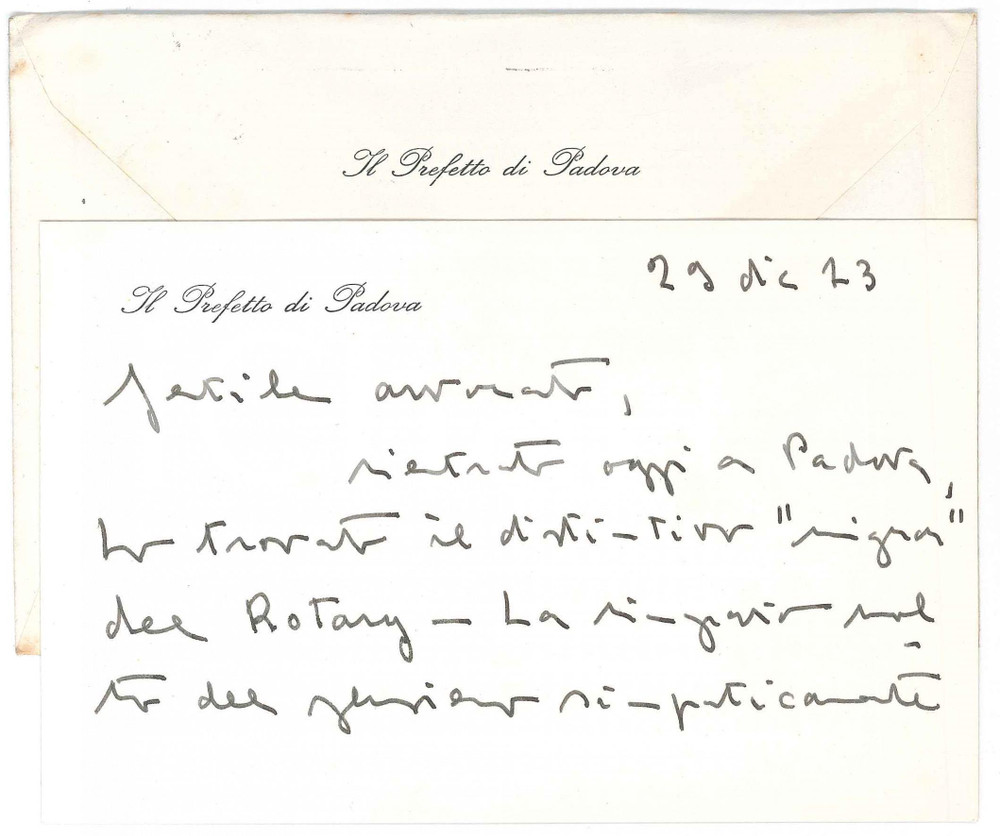 Il Prefetto di Padova
Il Prefetto di Padova
29 dic 73
Gentile avvocato,
rientrato oggi a Padova,
ho trovato il distintivo "mignon"
del Rotary - La ringrazio mol
to del pensiero simpaticamente